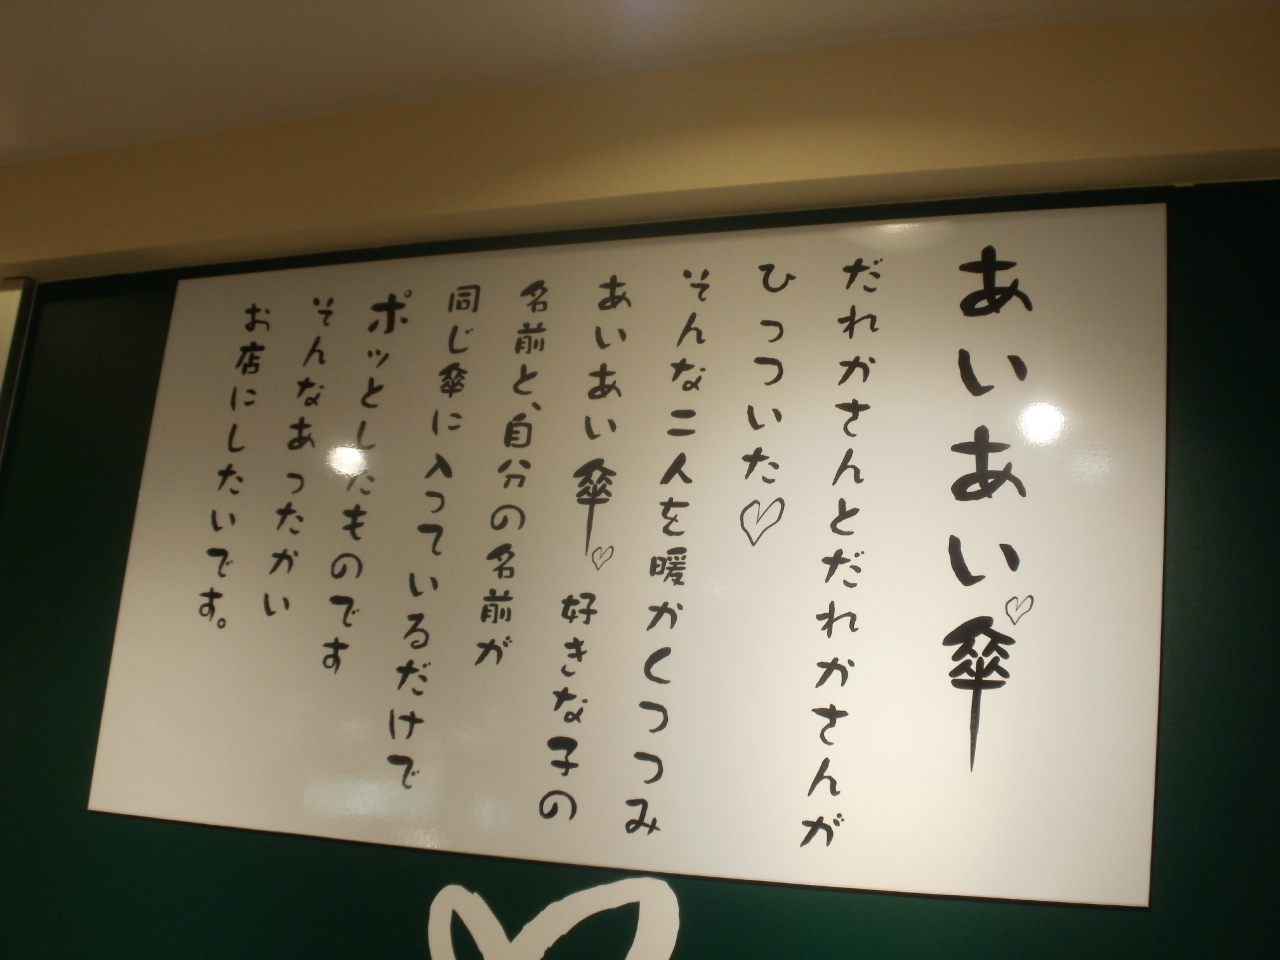 あいあい傘♡
だれかさんとだれかさんが
ひっついた♡
そんな二人を暖かくつつみ
あいあい傘♡ 好きな子の
名前と、自分の名前が
同じ傘に入っているだけで
ポッとしたものです
そんなあったかい
お店にしたいです。